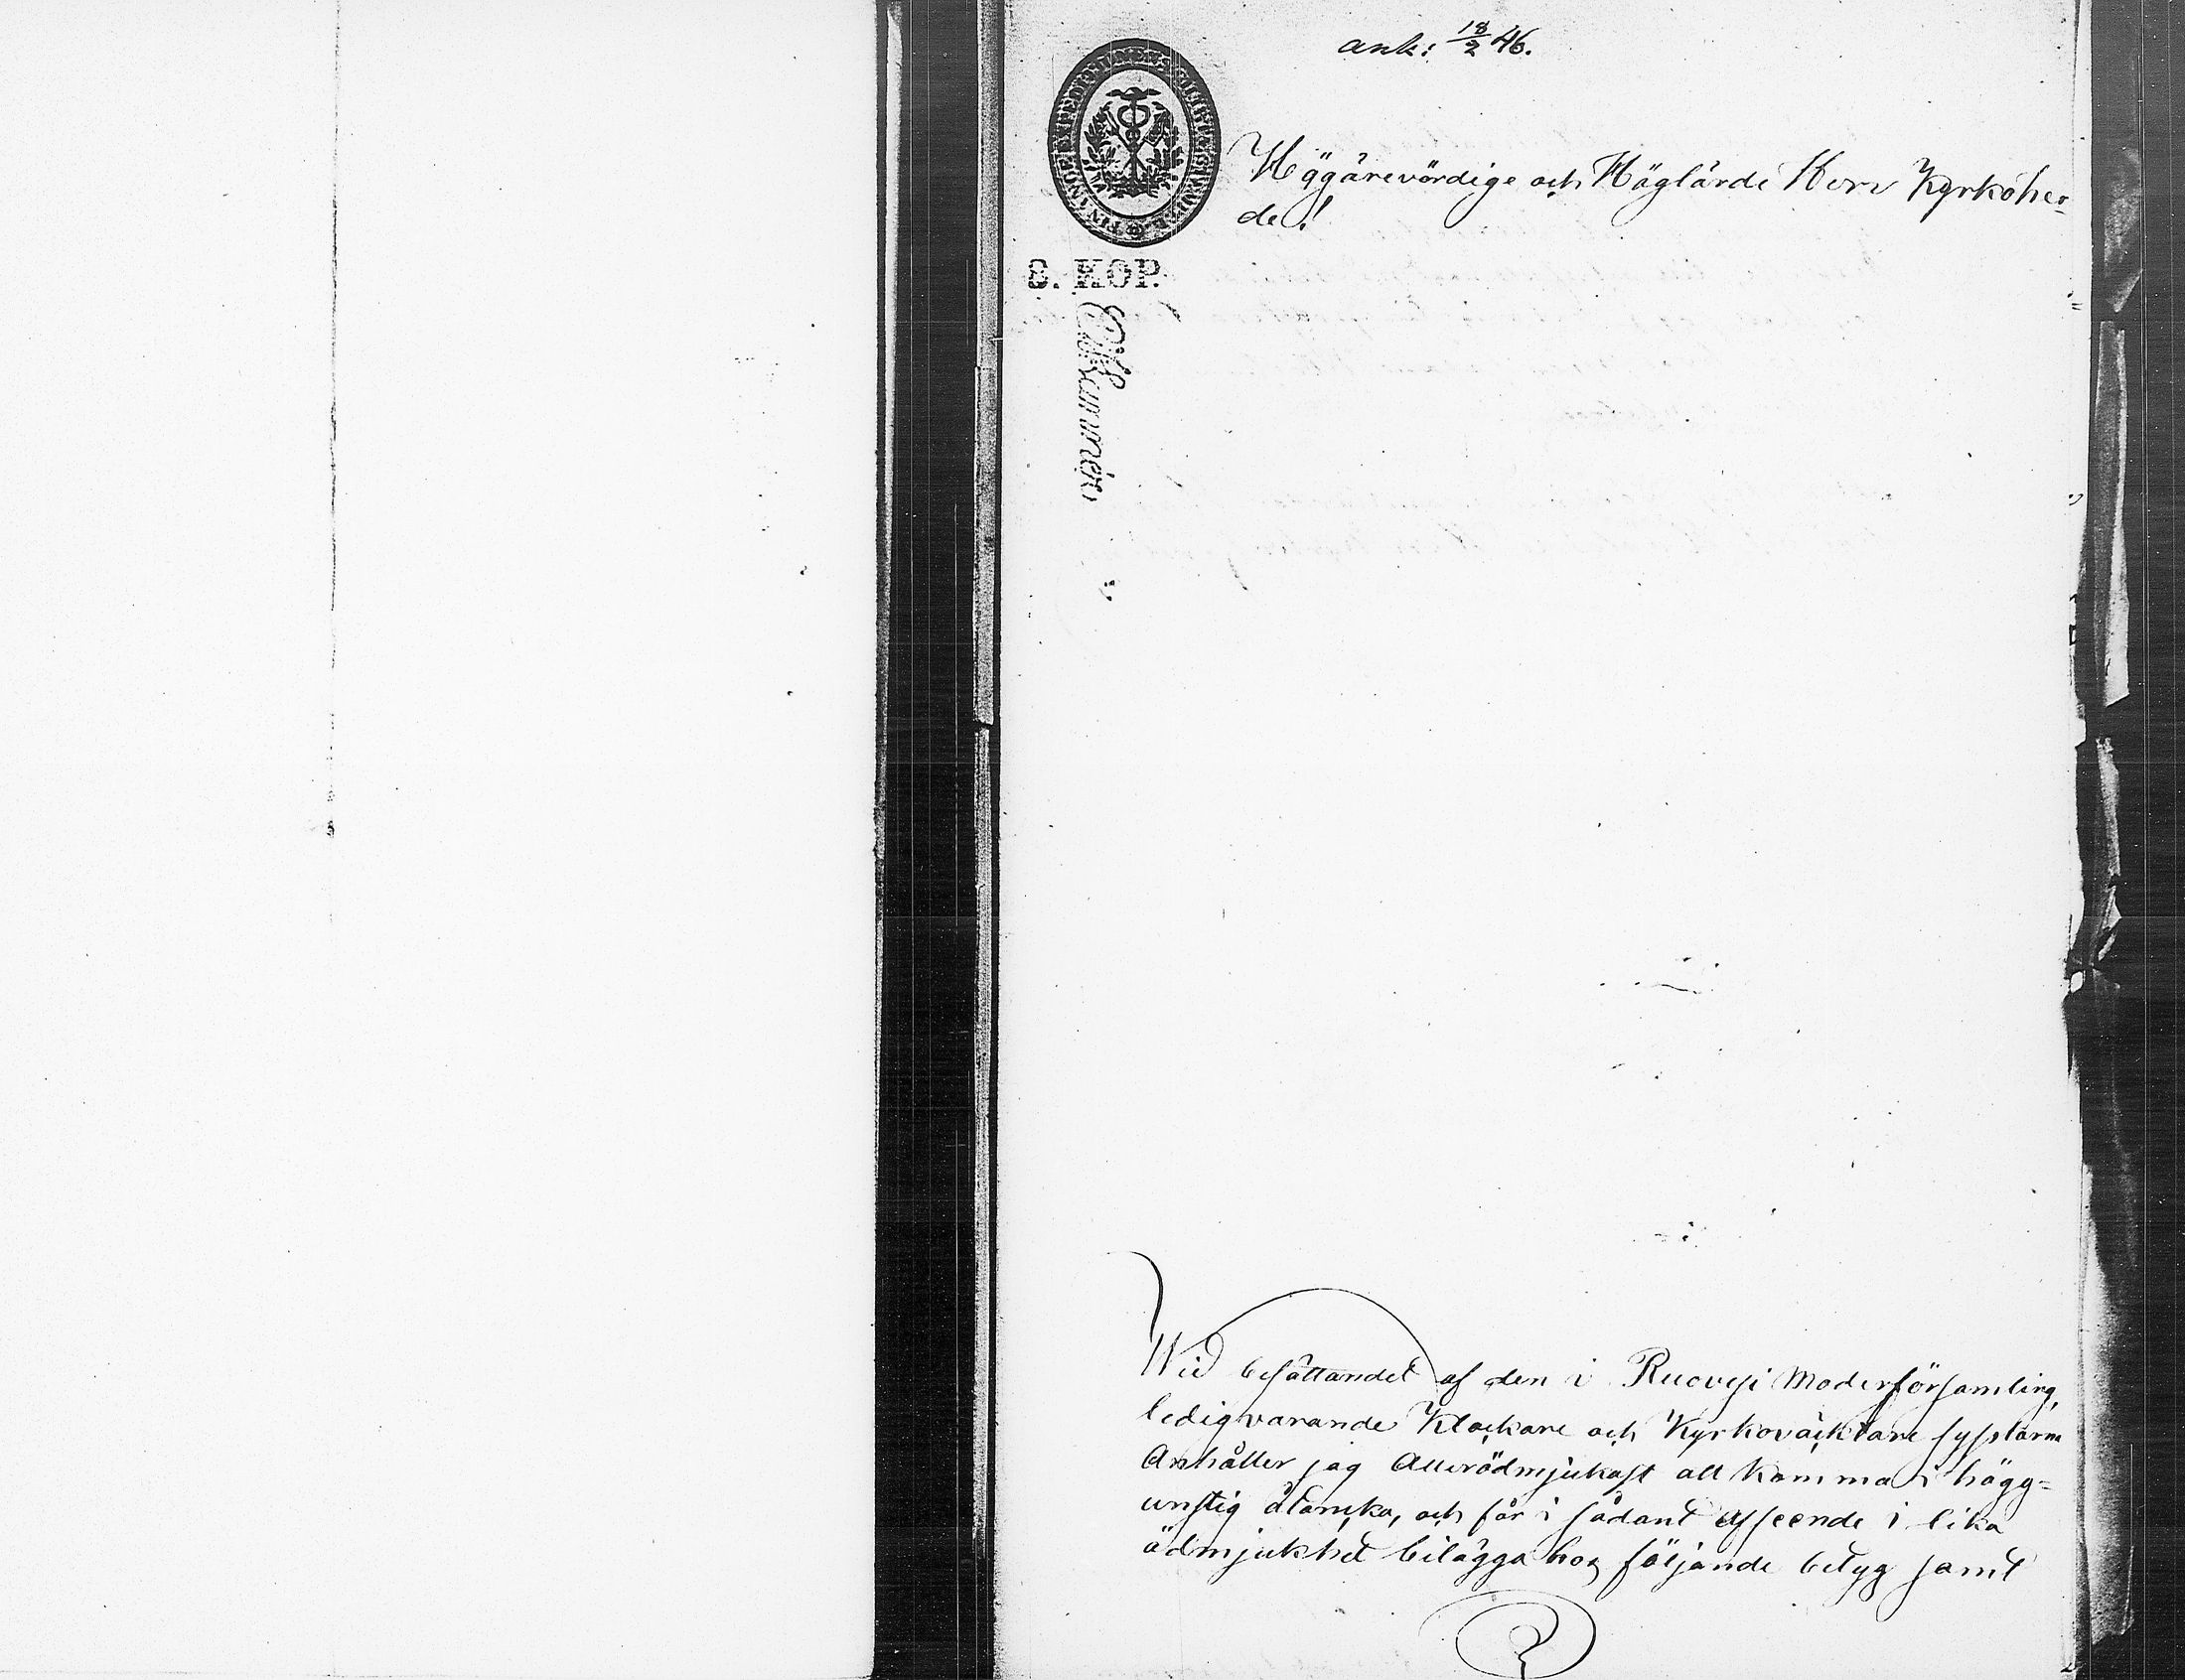 ank: 18/2 46.
Högärevördige och Höglärde Herr Kyrkoher-
de!
8. KOP.
Wid besättandet af den i Ruovesi Moderförsamling,
ledigvarande Klockare och Kyrkoväcktare sysslorna
Anhåller jag Allerödmjukast att komma i högg=
unstig åtanka, och får i sådant afseende i lika
ödmjukhet bilägga hos följande betyg samt